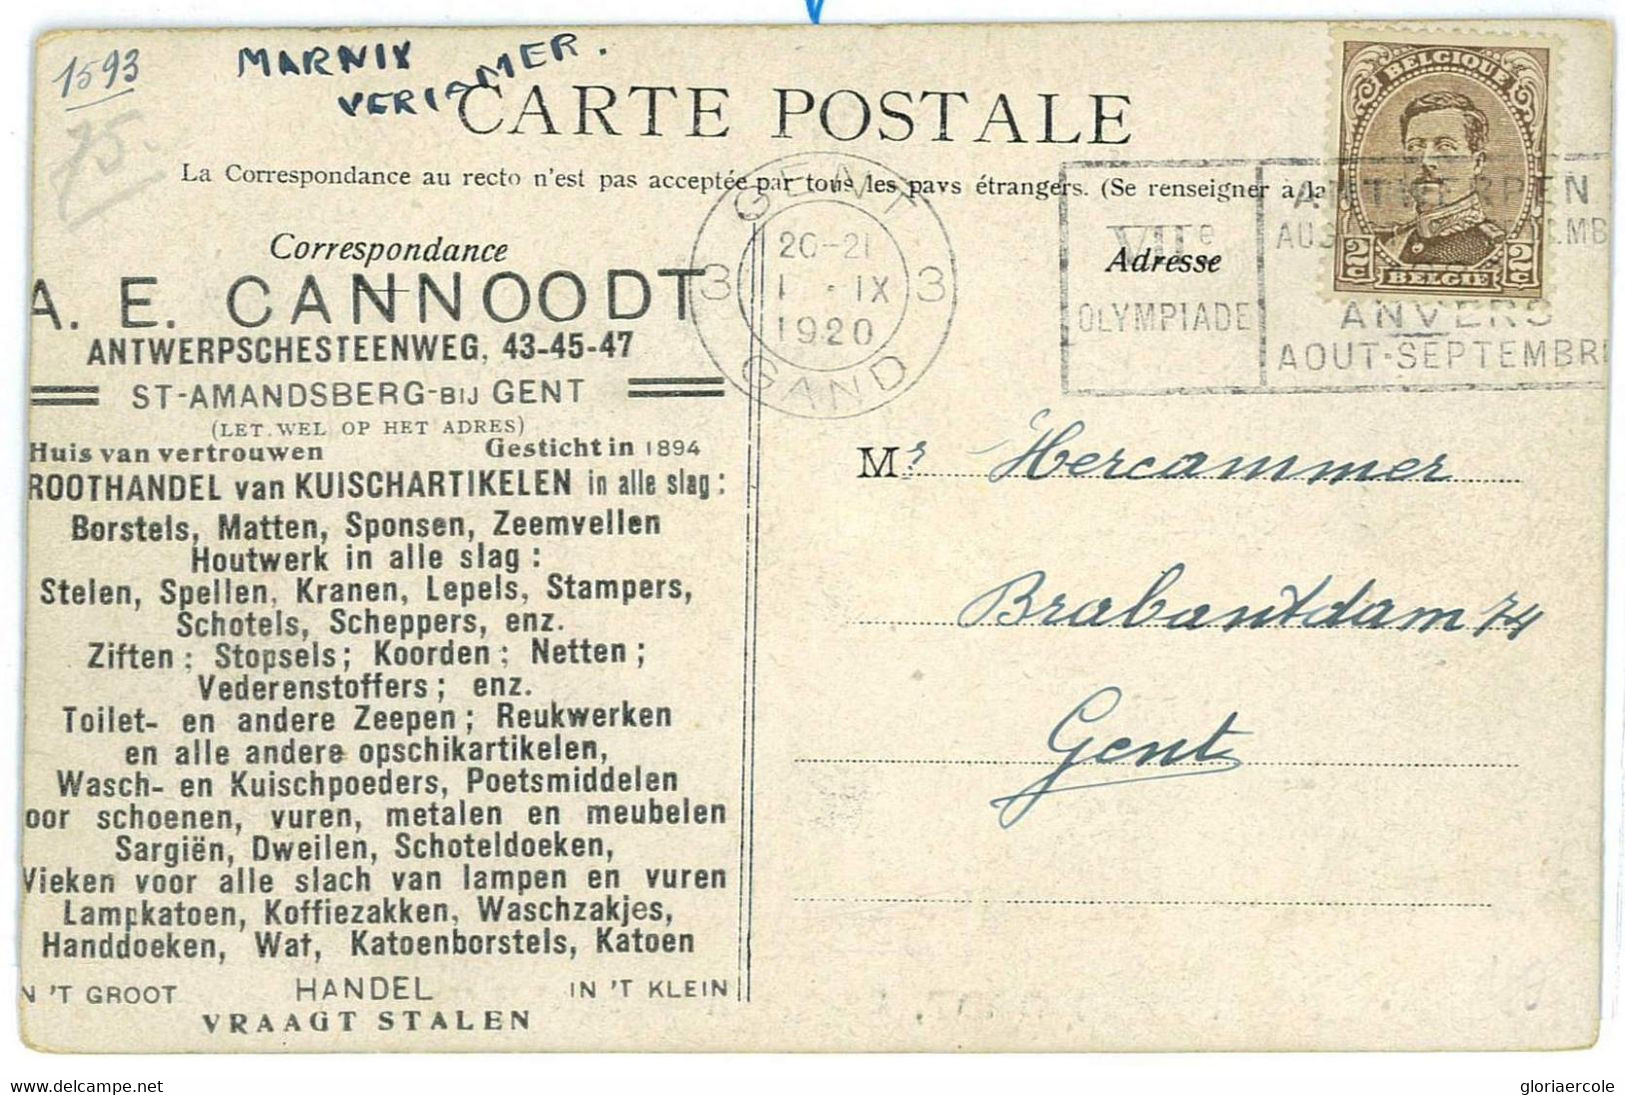 1593
75.
MARNIX
CARTE POSTALE
La Correspondance au recto n'est pas acceptée par tous les pays étrangers. (Se renseigner à la
Correspondance
Adresse
A. E. CANNOODT
ANTWERPSCHESTEENWEG, 43-45-47
ST-AMANDSBERG-BIJ GENT
(LET WEL OP HET ADRES)
Huis van vertrouwen Gesticht in 1894
ROOTHANDEL van KUISCHARTIKELEN in alle slag :
Borstels, Matten, Sponsen, Zeemvellen
Houtwerk in alle slag :
Stelen, Spellen, Kranen, Lepels, Stampers,
Schotels, Scheppers, enz.
Ziften ; Stopsels ; Koorden ; Netten ;
Vederenstoffers ; enz.
Toilet- en andere Zeepen ; Reukwerken
en alle andere opschikartikelen,
Wasch- en Kuischpoeders, Poetsmiddelen
oor schoenen, vuren, metalen en meubelen
Sargiën, Dweilen, Schoteldoeken,
Wieken voor alle slach van lampen en vuren
Lampkatoen, Koffiezakken, Waschzakjes,
Handdoeken, Wat, Katoenborstels, Katoen
N 'T GROOT HANDEL IN 'T KLEIN
VRAAGT STALEN
GENT
3 20-21 3
1 · IX
1920
GAND
VIIe
OLYMPIADE
ANTWERPEN
ANVERS
AOUT-SEPTEMBR
BELGIQUE
2c 2c
BELGIE
Mr Hercammer
Brabantdam 74
Gent
delcampe.net
gloriaercole